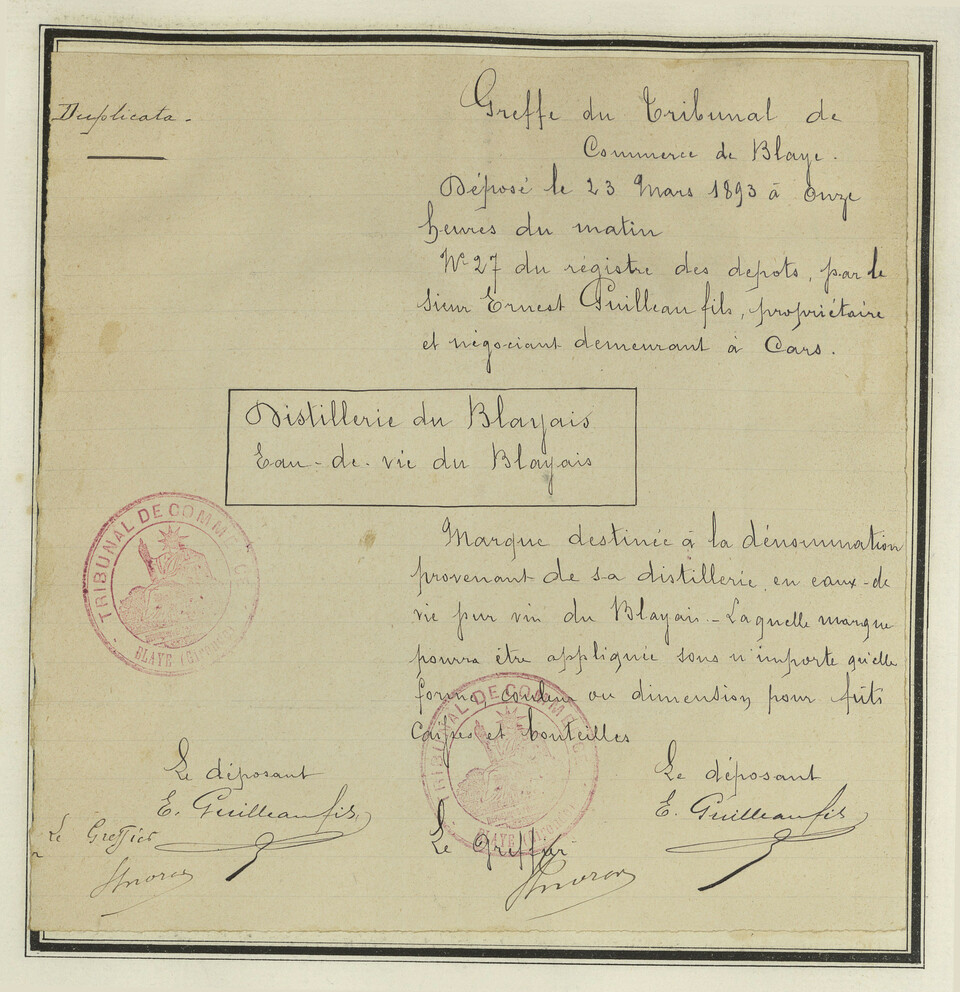 Duplicata.
Greffe du Tribunal de
Commerce de Blaye.
Déposé le 23 Mars 1893 à onze
heures du matin
Nº 27 du régistre des depots, par le
sieur Ernest Guilleau fils, propriétaire
et négociant demeurant à Cars.
Distillerie du Blayais
Eau-de-vie du Blayais
Marque destinée à la dénommation
provenant de sa distillerie, en eaux-de
vie pur vin du Blayais.- Laquelle marque
pourra être appliquée sous n'importe qu'elle
forme, couleur ou dimension pour fûts
Caisses et bouteilles
TRIBUNAL DE COMMERCE
BLAYE (Gironde)
TRIBUNAL DE COMMERCE
BLAYE (Gironde)
Le déposant
E. Guilleau fils
Le Greffier
Le déposant
E. Guilleau fils
Le Greffier